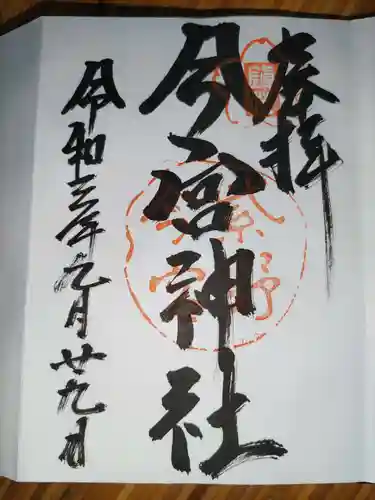 奉拝
今宮神社
令和三年九月廿九日